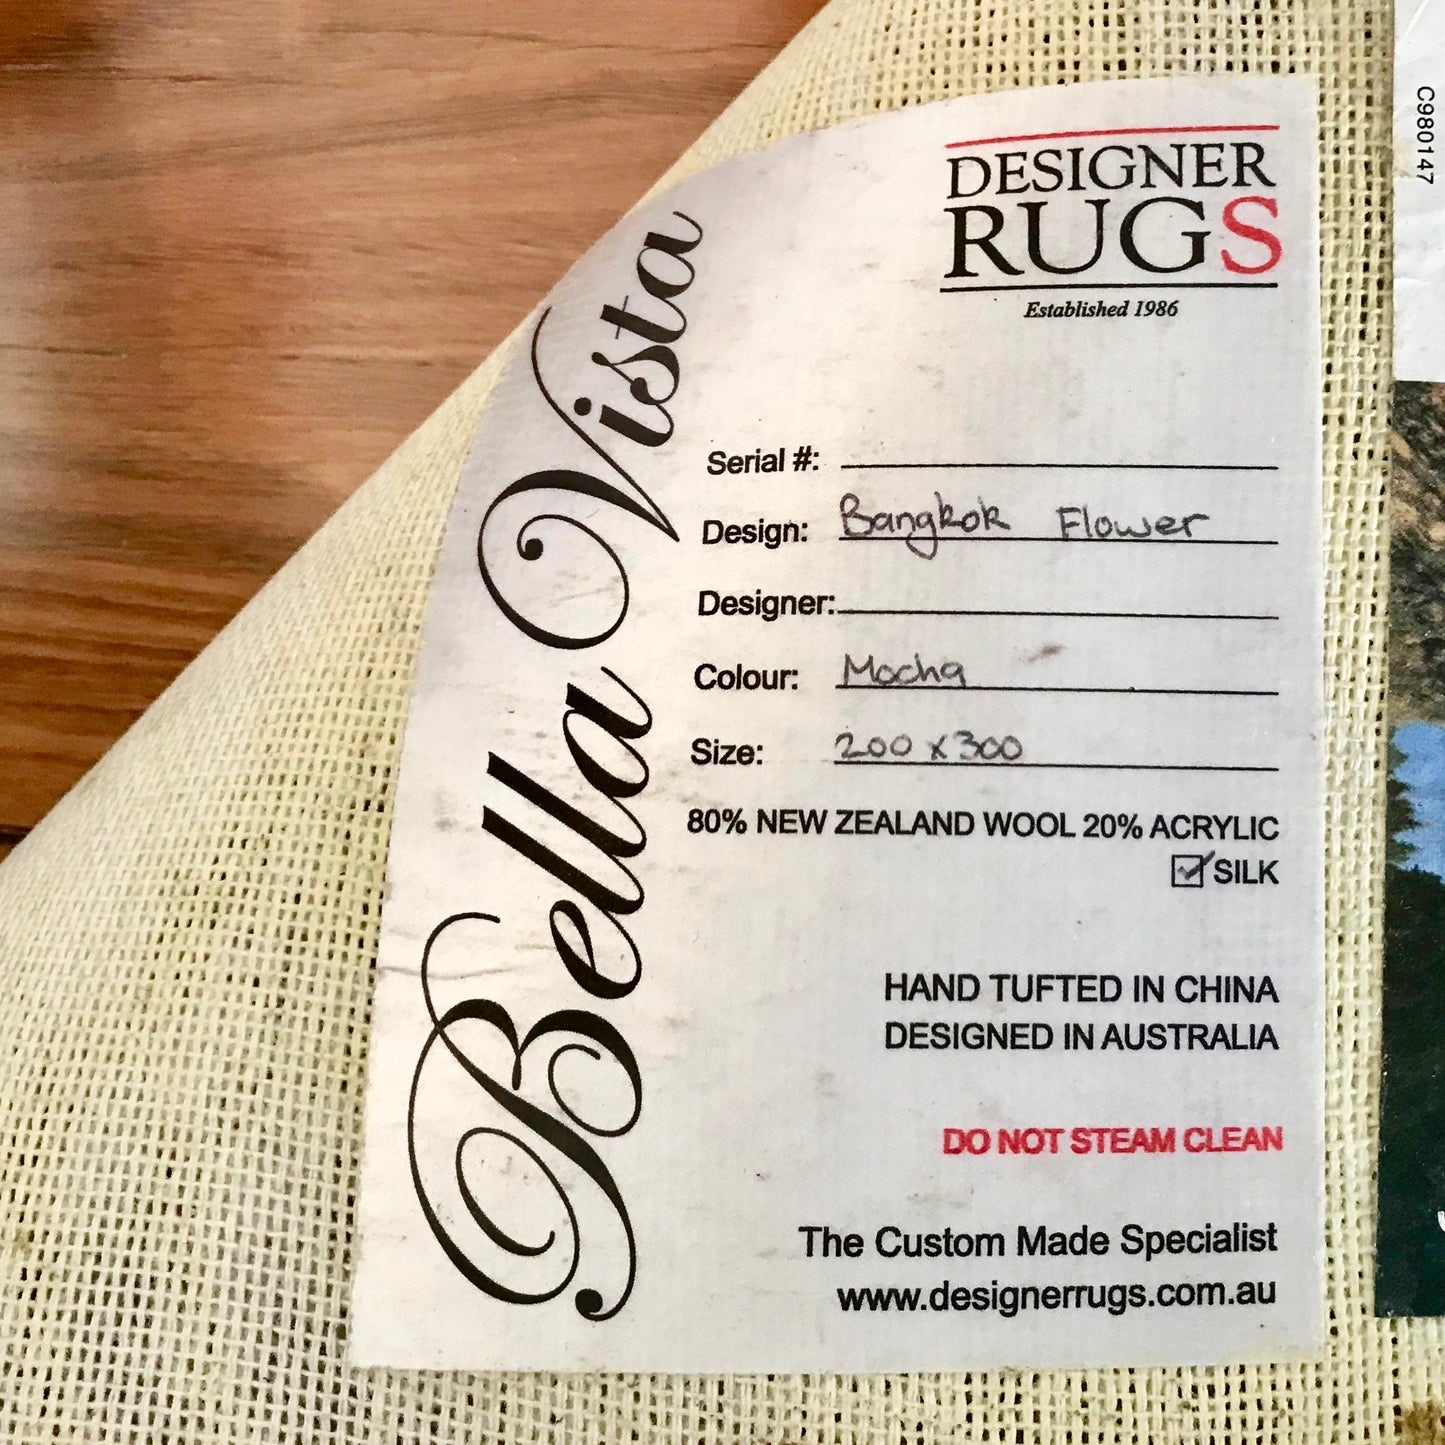 DESIGNER
RUGS
Established 1986
Bella Vista
Serial #:
Design: Bangkok Flower
Designer:
Colour: Mocha
Size: 200 x 300
80% NEW ZEALAND WOOL 20% ACRYLIC
SILK
HAND TUFTED IN CHINA
DESIGNED IN AUSTRALIA
DO NOT STEAM CLEAN
The Custom Made Specialist
www.designerrugs.com.au
C980147